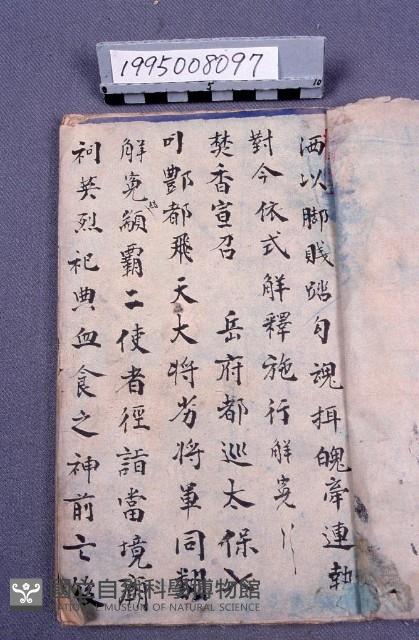 1995008097
0 5 10
洒以脚賤踏勾魂揖魄牽連執
對今依式解釋施行解寃
焚香宣召 岳府都巡太保
叫酆都飛天大將 將軍同
解寃 霸二使者徑詣當境
祠英烈祀典血食之神前亡
國立自然科學博物館
NATIONAL MUSEUM OF NATURAL SCIENCE